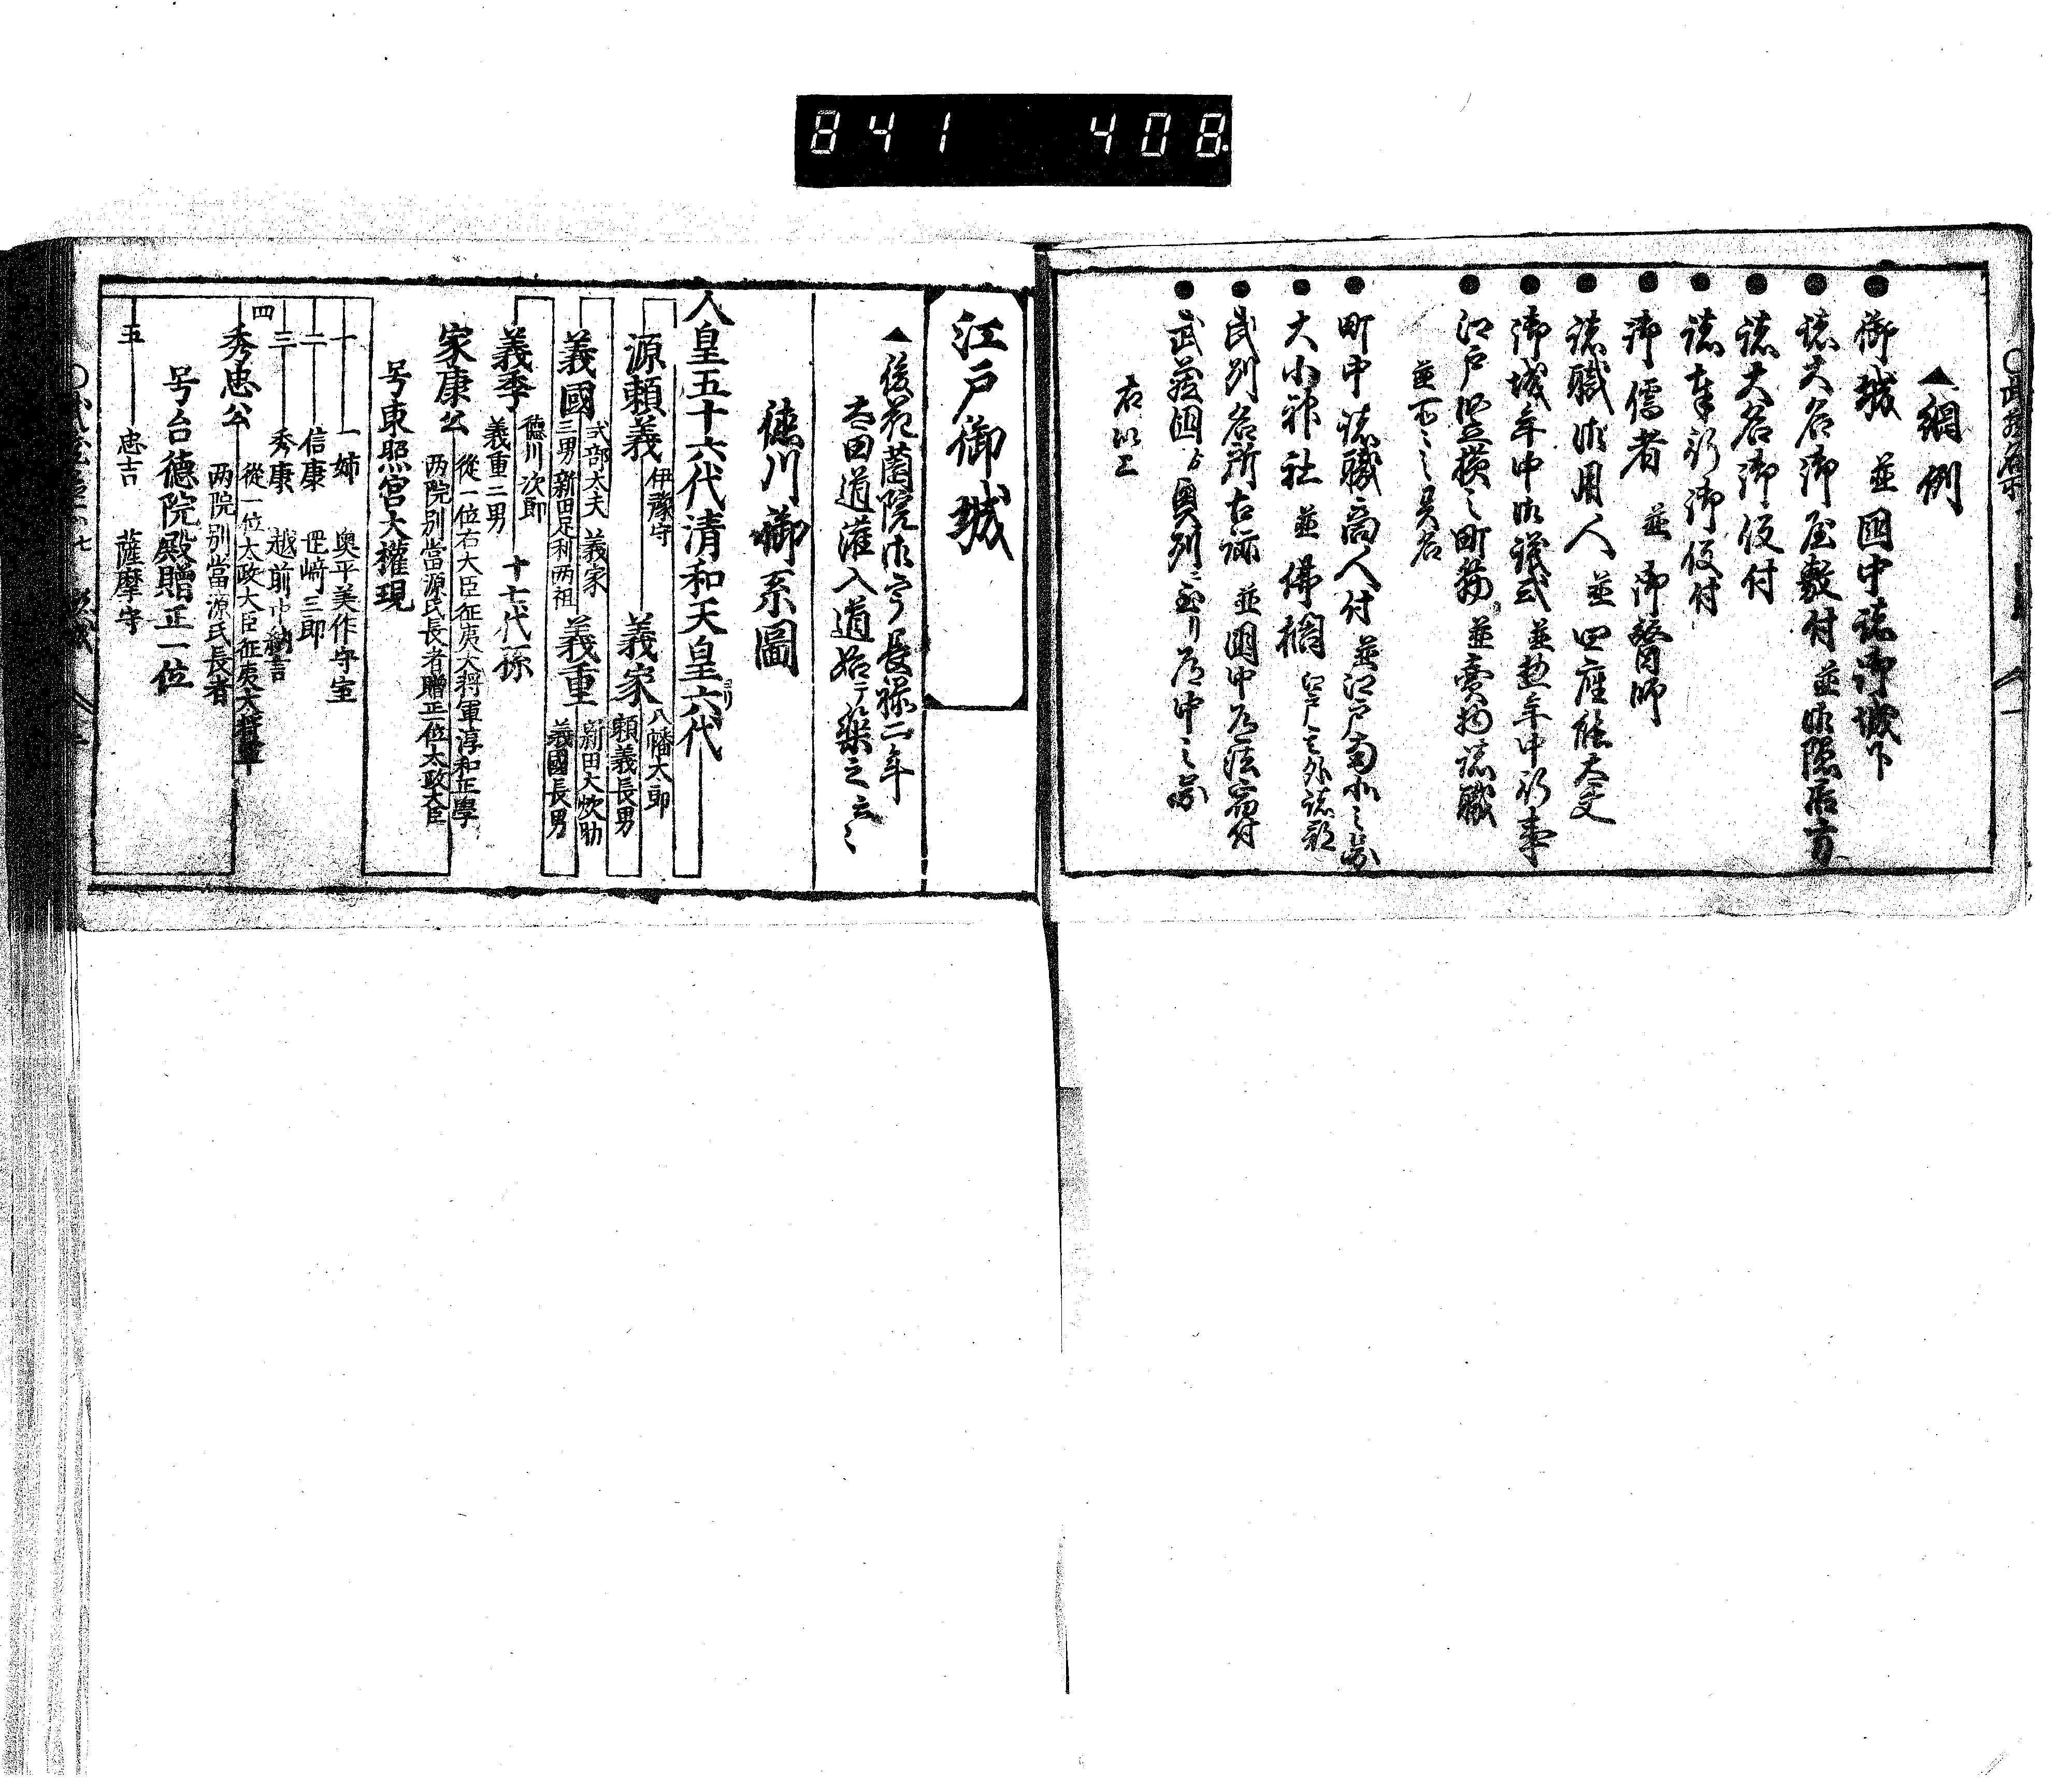 841 408
▲綱例
●御城 並 國中諸御城下
●諸大名御屋敷付 並 御隠居方
●諸大名御役付
●諸奉行御役付
●御儒者 並 御醫師
●諸職御用人 並 四座能大夫
●御城年中御議式 並 惣年中行事
●江戸竪横之町筋 並 賣物諸職
並 所々之異名
●町中諸職商人付 並 江戸南北之分
●大小神社 並 佛閣 江戸之外諸郡
●武列名所古跡 並 國中道法宿付
●武蔵國ゟ奥列ニ至リ道中之分
右以上
江戸御城
▲後花薗院御宇長禄二年
太田道灌入道始テ築之云々
徳川御系圖
人皇五十六代清和天皇六代
源頼義 伊豫守
義家 八幡太郎 頼義長男
義國 式部大夫 義家三男 新田足利両祖
義重 新田大炊助 義國長男
義季 徳川次郎 義重二男
十七代孫
家康公 從一位右大臣征夷大将軍淳和奨學
两院別當源氏長者贈正一位太政大臣
号東照宮大權現
一 一姉 奥平美作守室
二 信康 岡﨑三郎
三 秀康 越前中納言
四 秀忠公 從一位太政大臣征夷大将軍
两院別當源氏長者
号台德院殿贈正一位
五 忠吉 薩摩守